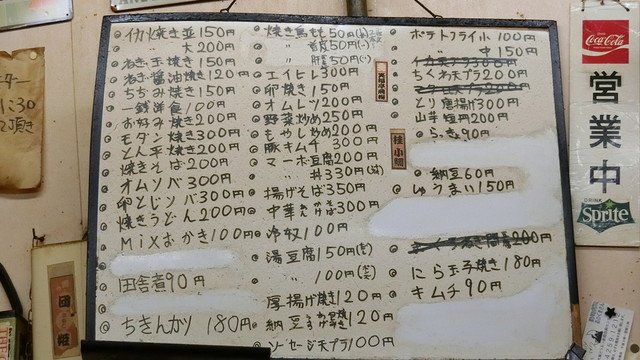 イカ焼き並150円
〃 大200円
ねぎ玉焼き150円
ねぎ醤油焼き120円
ちぢみ焼き150円
一銭洋食100円
お好み焼き200円
モダン焼き300円
とん平焼き200円
焼きそば200円
オムソバ300円
卵とじソバ300円
焼きうどん200円
Mixおかき100円
田舎煮90円
ちきんカツ 180円
焼き鳥もも50円
〃 首皮50円
〃 肝50円
エイヒレ300円
卵焼き150円
オムレツ200円
野菜炒め250円
もやし炒め200円
豚キムチ 300円
マーボ豆腐200円
〃 丼330円
揚げそば350円
中華 300円
冷奴100円
湯豆腐150円
〃 100円
厚揚げ焼き120円
納豆 120円
ソーセージ天プラ100円
ポテトフライ小100円
〃 中150円
イカ天プラ300円
ちくわ天プラ200円
とり唐揚げ300円
山芋短冊200円
らっきょ90円
納豆60円
しゅうまい150円
にら玉子焼き180円
キムチ90円
Coca-Cola
営業中
DRINK
Sprite